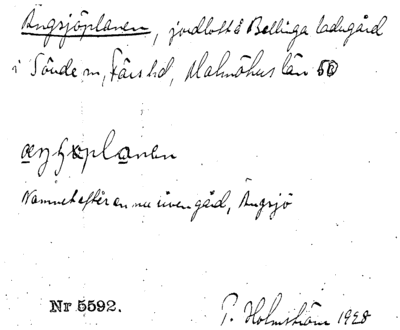 Ängsjöplanen, jordlott å Bellinga ladugård
i Sönde m, Färs hd, Malmöhus län
planen
Namnet efter en nu öven gård, Ängsjö
Nr 5592. P. Holmström 1928